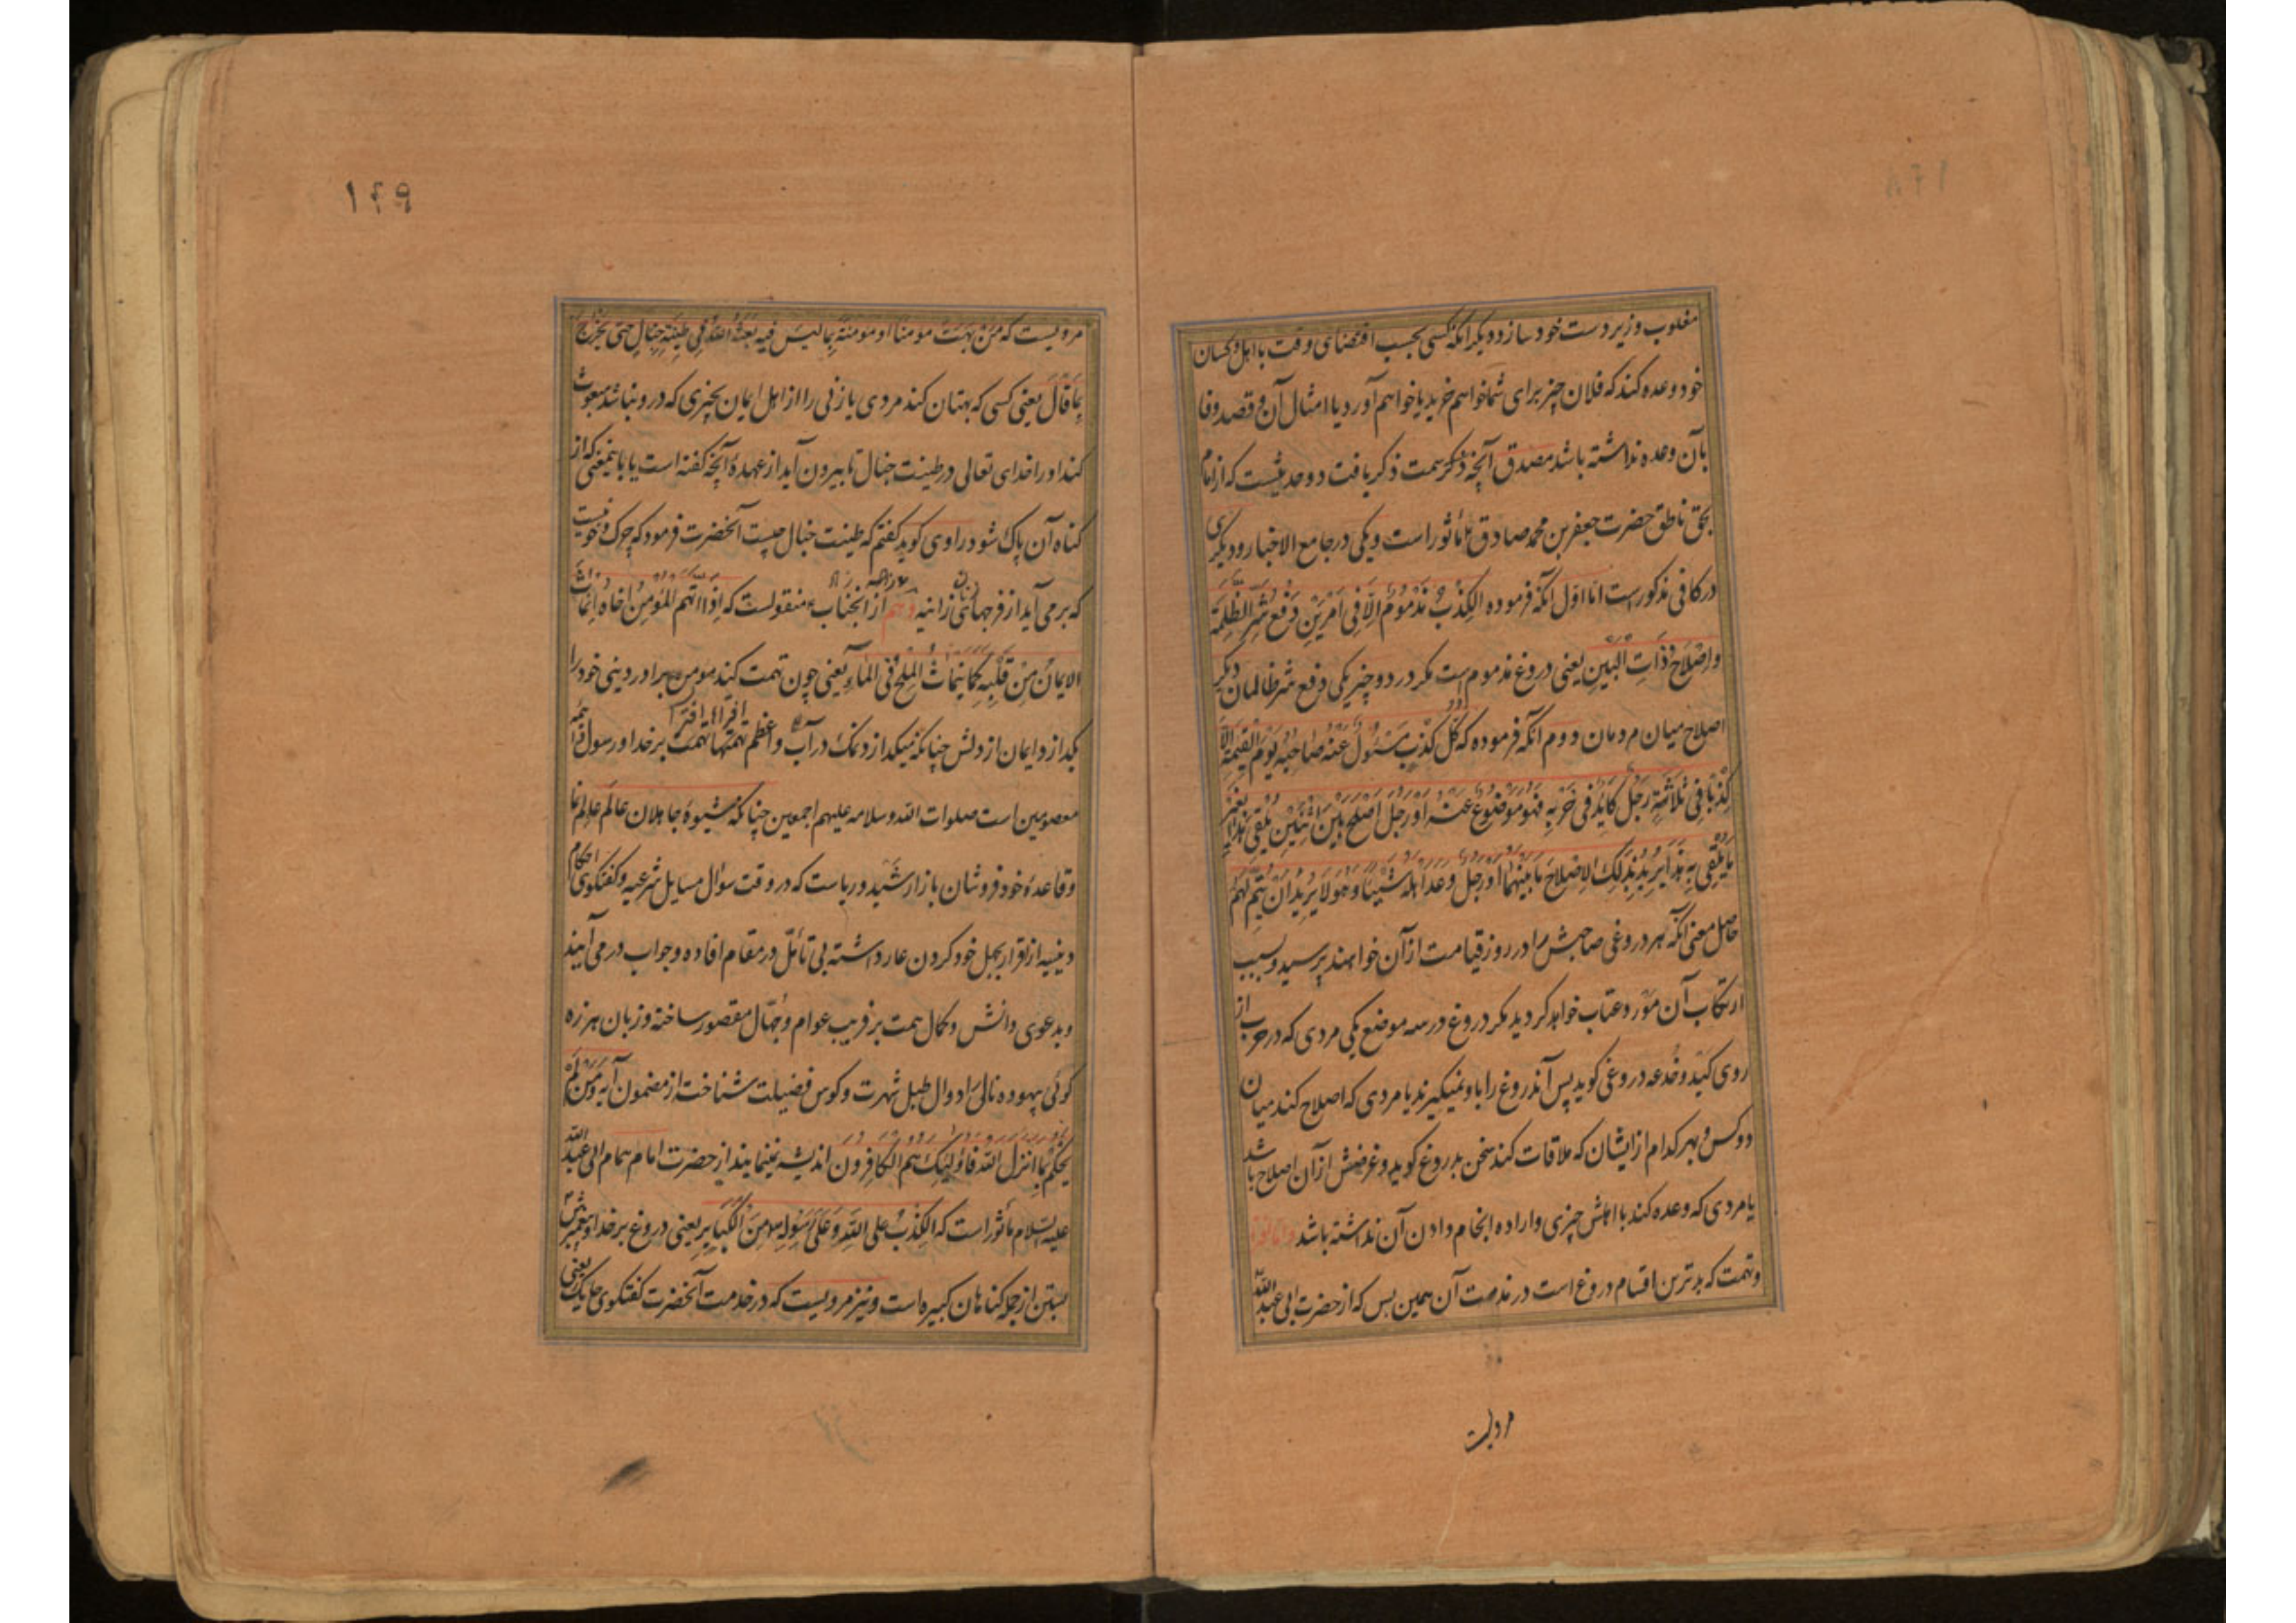 مغلوب و زیردست خود سازد و دیکر آنکه کسی بحسب اقتضای وقت با اهل و کسان
خود وعده کند که فلان چیز برای شما خواهم خرید یا خواهم آورد یا امثال آن و قصد وفا
بآن وعده نداشته باشد مصدق آنچه ذکرش سمت ذکر یافت دو حدیثست که از امام
بحق ناطق حضرت جعفر بن محمد صادق ع ماثور است و یکی در جامع الاخبار و دیکری
در کافی مذکور است اما اول آنکه فرموده الکِذْبُ مَذْمُومٌ اِلّا فِی اَمْرَیْنِ دَفْعِ شَرِّ الظَّلَمَةِ
وَاِصْلاحِ ذَاتِ الْبَیْنِ یعنی دروغ مذموم است مکر در دو چیز یکی دفع شر ظالمان دیکر
اصلاح میان مردمان دوم آنکه فرموده که کُلُّ کَذِبٍ مَسْئُولٌ عَنْهُ صَاحِبُهُ یَوْمَ الْقِیمَةِ اِلَّا
کِذْبًا فِی ثَلاثَةٍ رَجُلٌ کَایِدٌ فِی حَرْبِهِ فَهُوَ مَوْضُوعٌ عَنْهُ اَوْ رَجُلٌ اَصْلَحَ بَیْنَ اثْنَیْنِ یَلْقِی هَذَا بِغَیْرِ
مَا یَلْقِی بِهِ هَذَا یُرِیدُ بِذَلِکَ الاِصْلاحَ مَا بَیْنَهُمَا اَوْ رَجُلٌ وَعَدَ اَهْلَهُ شَیْئًا وَهُوَ لَا یُرِیدُ اَنْ یُتِمَّ لَهُمْ
حاصل معنی آنکه هر دروغی صاحبش را در روز قیامت از آن خواهند پرسید و سبب
ارتکاب آن مورد عتاب خواهد کردید مکر دروغ در سه موضع یکی مردی که در حرب از
روی کید و خدعه دروغی کوید پس آن دروغ را با و نمیکیرند یا مردی که اصلاح کند میان
دو کس و بهر کدام از ایشان که ملاقات کند سخن بدروغ کوید و غرضش از آن اصلاح باشد
یا مردی که وعده کند با اهلش چیزی و اراده انجام دادن آن نداشته باشد و اما افترا
و تهمت که بدترین اقسام دروغ است در مذمت آن همین بس که از حضرت ابی عبد الله
مرویست
۱۴۹
مرویست که مَنْ بَهَتَ مومِنًا اَو مومِنَةً بِمَا لَیْسَ فِیهِ بَعَثَهُ اللهُ فِی طِینَةِ خَبَالٍ حَتّی یَخْرُجَ
مِمّا قَالَ یعنی کسی که بهتان کند مردی یا زنی را از اهل ایمان بچیزی که درو نباشد مبعوث
کند او را خدای تعالی در طینت خبال تا بیرون آید از عهدهٔ آنچه کفته است یا باینمعنی که از
کناه آن پاک شود راوی کوید کفتم که طینت خبال چیست آنحضرت فرمود که چرک و خونیست
که برمی آید از فرجهای زنان زانیه و هم از آنجناب ع منقولست که اِذَا اتَّهَمَ الْمُومِنُ اَخَاهُ اِنْمَاثَ
الایمَانُ مِنْ قَلْبِهِ کَمَا یَنْمَاثُ الْمِلْحُ فِی الْمَاءِ یعنی چون تهمت کند مومن برادر دینی خود را
بکدازد ایمان از دلش چنانکه میکدازد نمک در آب و اعظم تهمتها تهمت بر خدا و رسول و ائمه
معصومین است صلوات الله و سلامه علیهم اجمعین چنانکه شیوهٔ جاهلان عالم نما
و قاعدهٔ خودفروشان بازار شید و ریاست که در وقت سؤال مسایل شرعیه و کفتکوی احکام
دینیه از اقرار بجهل خود کردن عار داشته بی تأمل در مقام افاده و جواب درمی آیند
و بدعوی دانش و کمال همت بر فریب عوام و جهال مقصور ساخته و زبان هرزه
کوئی بیهوده نالی را دوال طبل شهرت و کوس فضیلت شناخته از مضمون آیه وَمَنْ لَمْ
یَحْکُمْ بِمَا اَنْزَلَ اللهُ فَاُولئِکَ هُمُ الْکَافِرُونَ اندیشه نمینمایند از حضرت امام همام ابی عبد الله
علیه السلام مأثور است که الکِذْبُ عَلَی اللهِ وَعَلَی رَسُولِهِ مِنَ الْکَبَایِرِ یعنی دروغ بر خدا و پیغمبرش
بستن از جمله کناهان کبیره است و نیز مرویست که در خدمت آنحضرت کفتکوی حایک یعنی